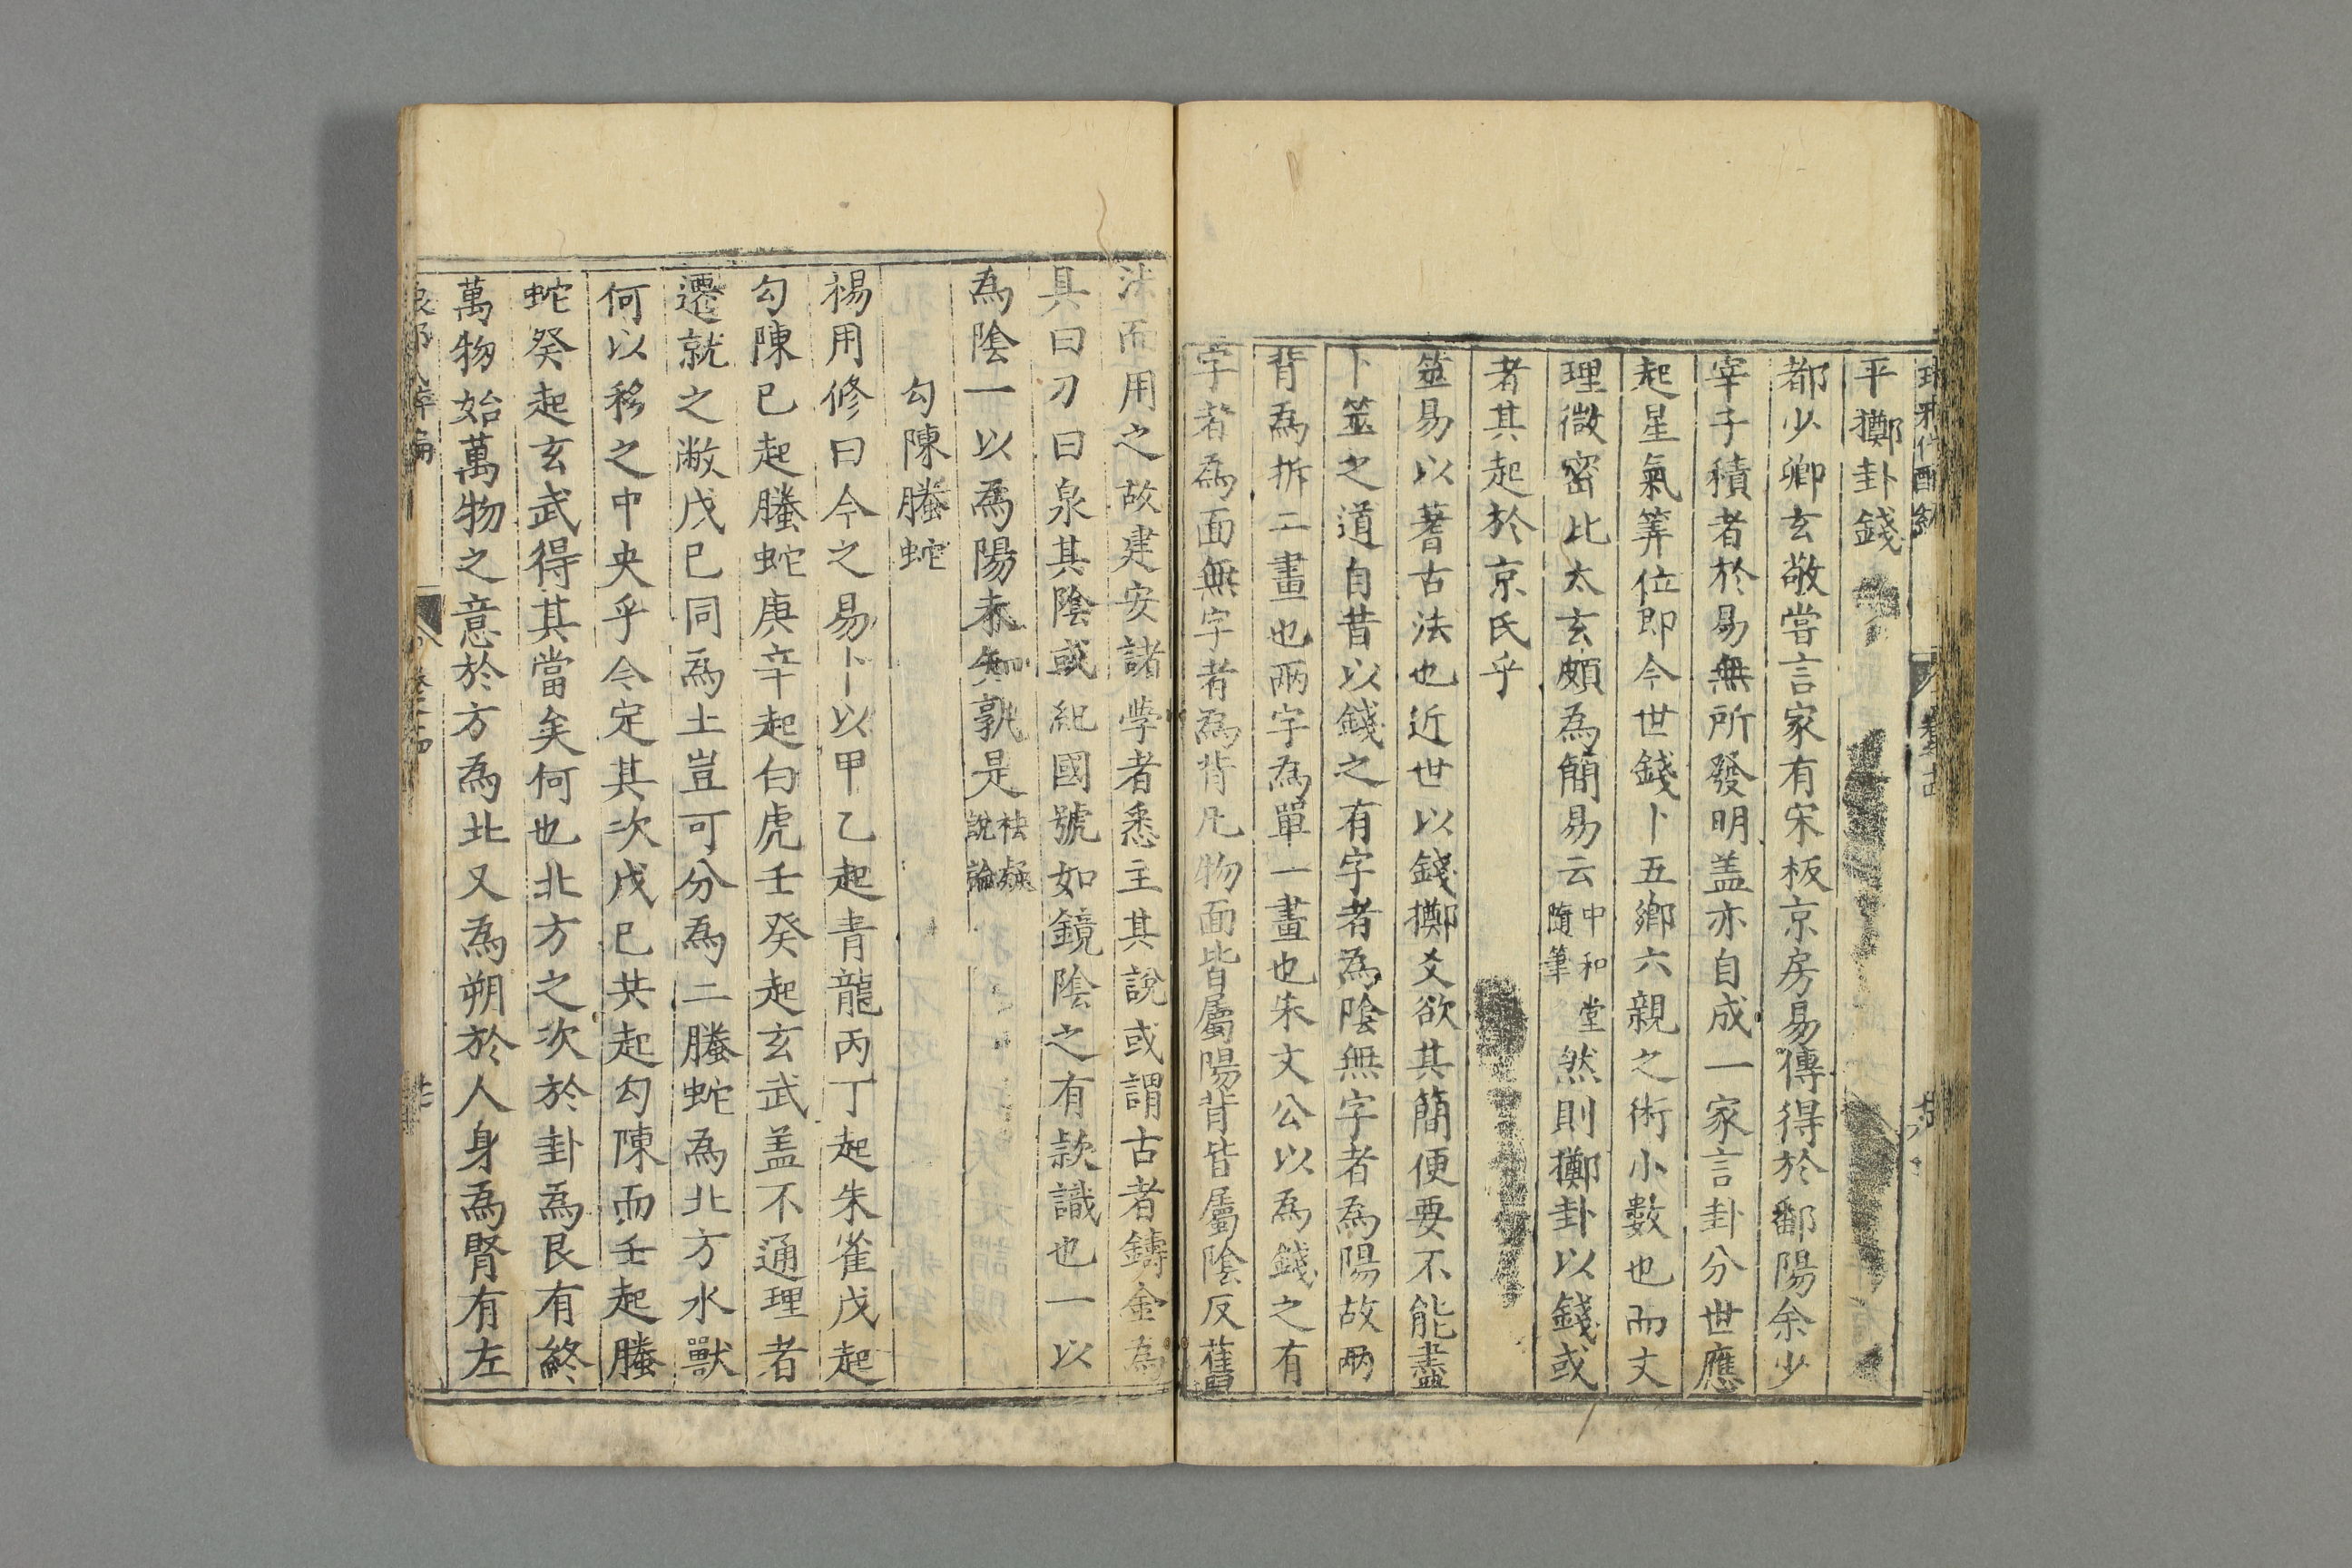 平擲卦錢
都少卿玄敬嘗言家有宋板京房易傳得於鄱陽余少
宰子積者於易無所發明盖亦自成一家言卦分世應
起星氣筭位即今世錢卜五鄉六親之術小數也而文
理微密比太玄頗為簡易云中和堂隨筆然則擲卦以錢或
者其起於京氏乎
筮易以蓍古法也近世以錢擲爻欲其簡便要不能盡
卜筮之道自昔以錢之有字者為陰無字者為陽故兩
背為拆二畫也兩字為單一畫也朱文公以為錢之有
字者為面無字者為背凡物面皆屬陽背皆屬陰反舊
法而用之故建安諸學者悉主其說或謂古者鑄金為
具曰刀曰泉其陰或紀國號如鏡陰之有款識也一以
為陰一以為陽未知孰是祛疑說論
勾陳螣蛇
楊用修曰今之易卜以甲乙起青龍丙丁起朱雀戊起
勾陳巳起螣蛇庚辛起白虎壬癸起玄武盖不通理者
遷就之敝戊巳同為土豈可分為二螣蛇為北方水獸
何以移之中央乎今定其次戊巳共起勾陳而壬起螣
蛇癸起玄武得其當矣何也北方之次於卦為艮有終
萬物始萬物之意於方為北又為朔於人身為腎有左